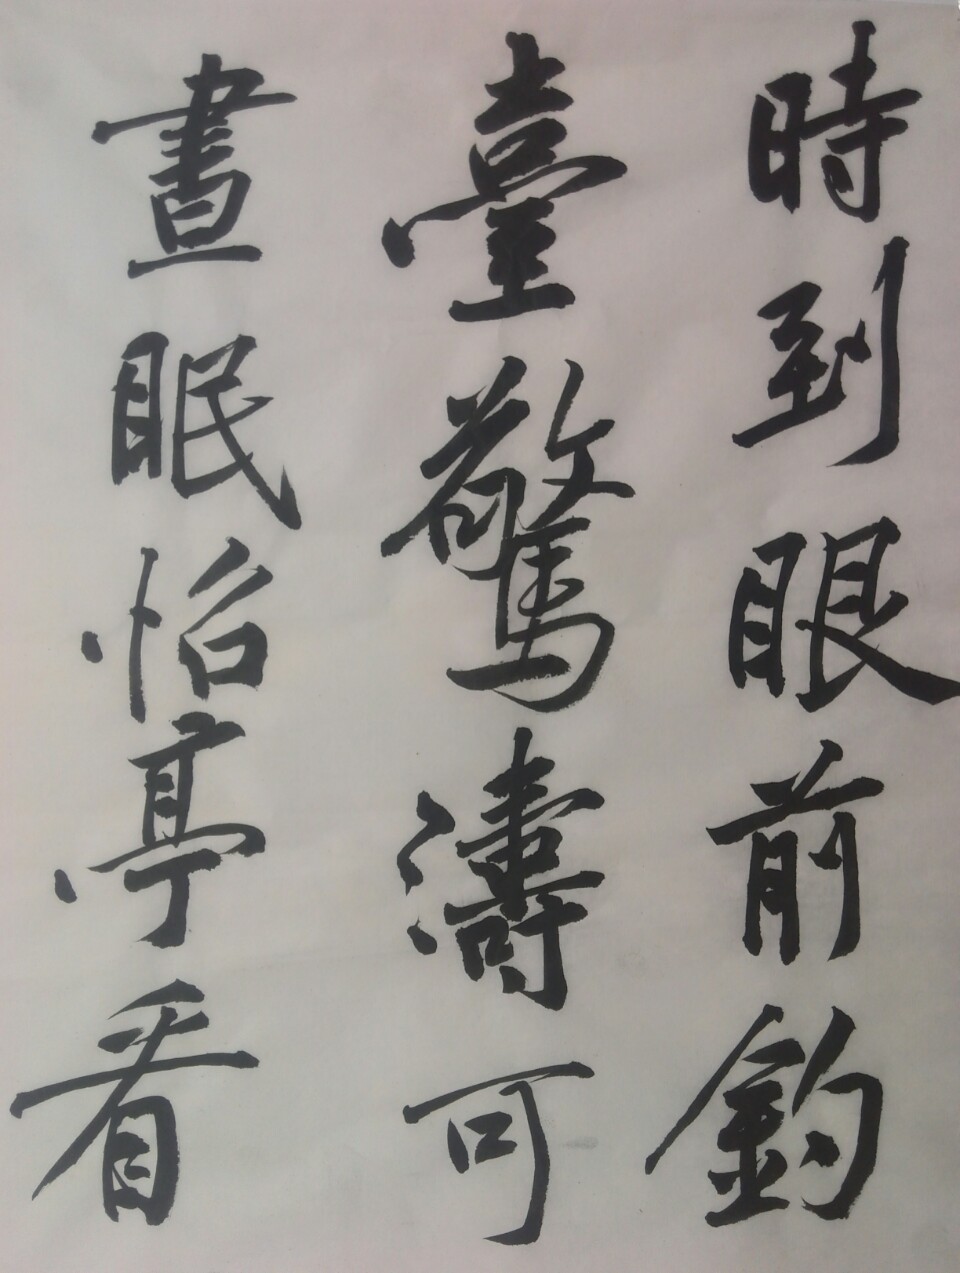 時到眼前釣
臺驚濤可
晝眠怡亭看